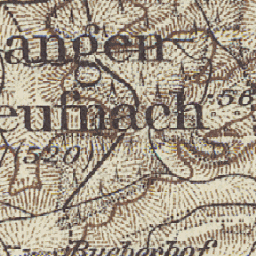 angen-
eufnach
.56
(520)
Bucherhof